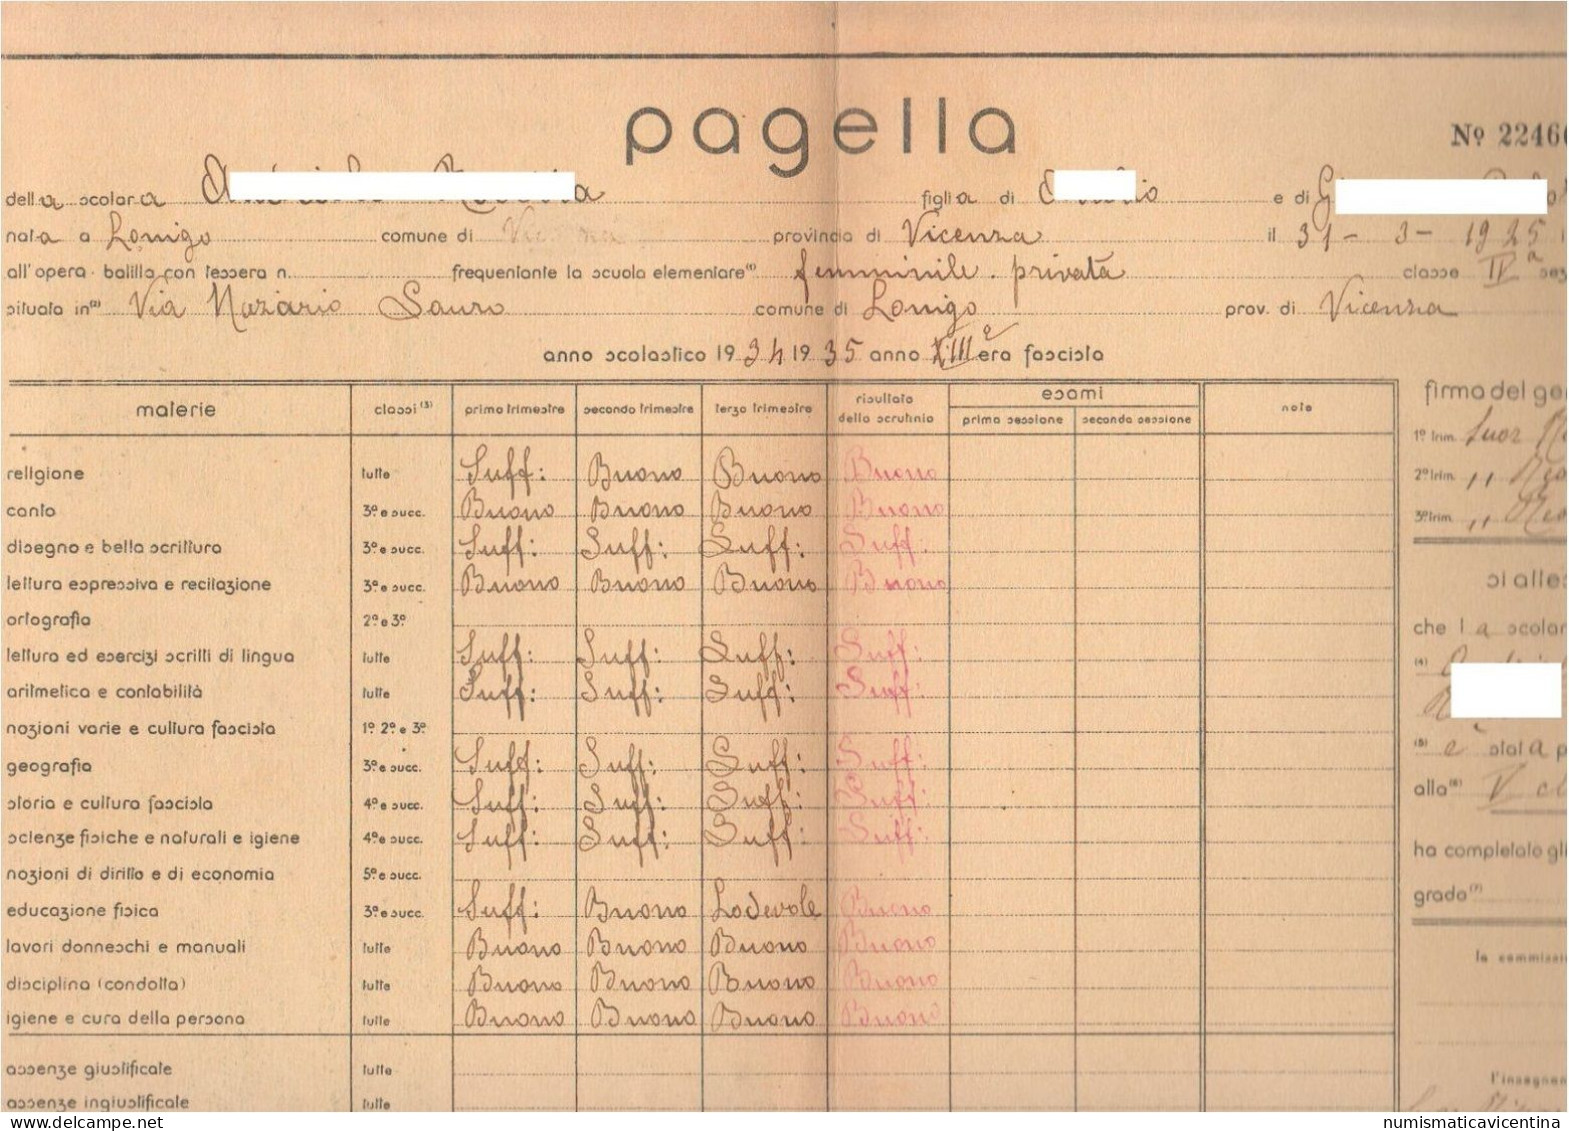 pagella
Nº 22466
della scolara
figlia di
e di
nata a Lonigo comune di provincia di Vicenza il 31 - 3 - 1925
all'opera balilla con tessera n. frequentante la scuola elementare (1) femminile privata classe IVª sez
situata in (2) Via Nazario Sauro comune di Lonigo prov. di Vicenza
anno scolastico 1934 1935 anno XIIIº era fascista
materie classi (3) primo trimestre secondo trimestre terzo trimestre risultato dello scrutinio esami prima sessione seconda sessione note
religione tutte Suff: Buono Buono Buono
canto 3ª e succ. Buono Buono Buono Buono
disegno e bella scrittura 3ª e succ. Suff: Suff: Suff: Suff:
lettura espressiva e recitazione 3ª e succ. Buono Buono Buono Buono
ortografia 2ª e 3ª
lettura ed esercizi scritti di lingua tutte Suff: Suff: Suff: Suff:
aritmetica e contabilità tutte Suff: Suff: Suff: Suff:
nozioni varie e cultura fascista 1ª 2ª e 3ª
geografia 3ª e succ. Suff: Suff: Suff: Suff:
storia e cultura fascista 4ª e succ. Suff: Suff: Suff: Suff:
scienze fisiche e naturali e igiene 4ª e succ. Suff: Suff: Suff: Suff:
nozioni di diritto e di economia 5ª e succ.
educazione fisica 3ª e succ. Suff: Buono Lodevole Buono
lavori donneschi e manuali tutte Buono Buono Buono Buono
disciplina (condotta) tutte Buono Buono Buono Buono
igiene e cura della persona tutte Buono Buono Buono Buono
assenze giustificate tutte
assenze ingiustificate tutte
firma del ge
1º trim. Suor
2º trim. ,,
3º trim. ,,
si attes
che la scolar
(4)
(5) è stata p
alla (6) V cl
ha completato gli
grado (7)
la commissi
l'insegnan
www.delcampe.net
numismaticavicentina